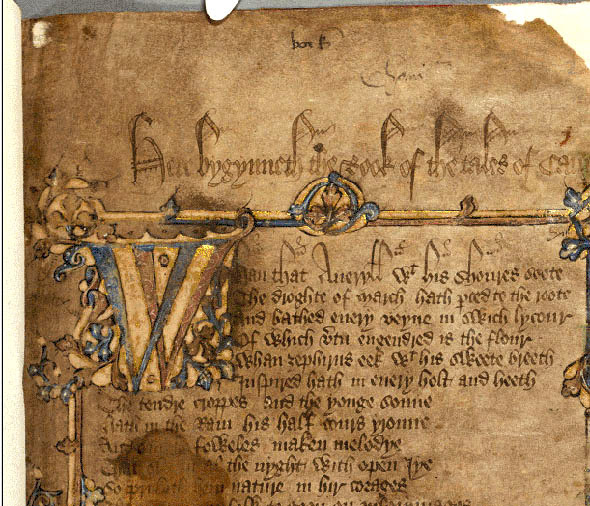 Here bygynneth the Book of the tales of Cau
Whan that Aueryll wt his shoures soote
The droghte of march hath pced to the roote
And bathed euery veyne in swich lycour
Of which vtu engendred is the flour
Whan zephirus eek wt his sweete breeth
Inspired hath in euery holt and heeth
The tendre croppes and the yonge sonne
Hath in the Ram his half cours yronne
And foweles maken melodye
That al the nyght with open Iye
So priketh hem nature in hir corages
to goon on pilgrymages